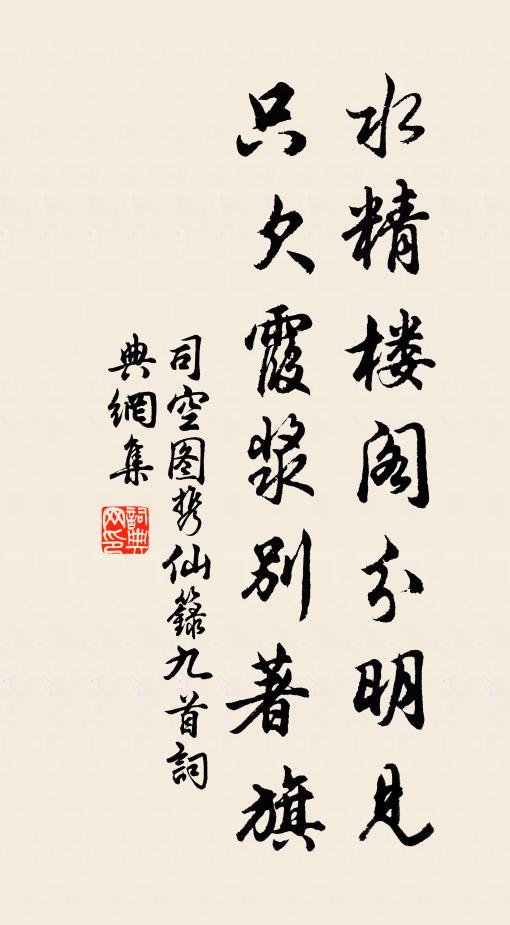 水精楼阁分明见
只欠霞浆别著旗
司空图携仙籙九首詞
典網集
詞典網印